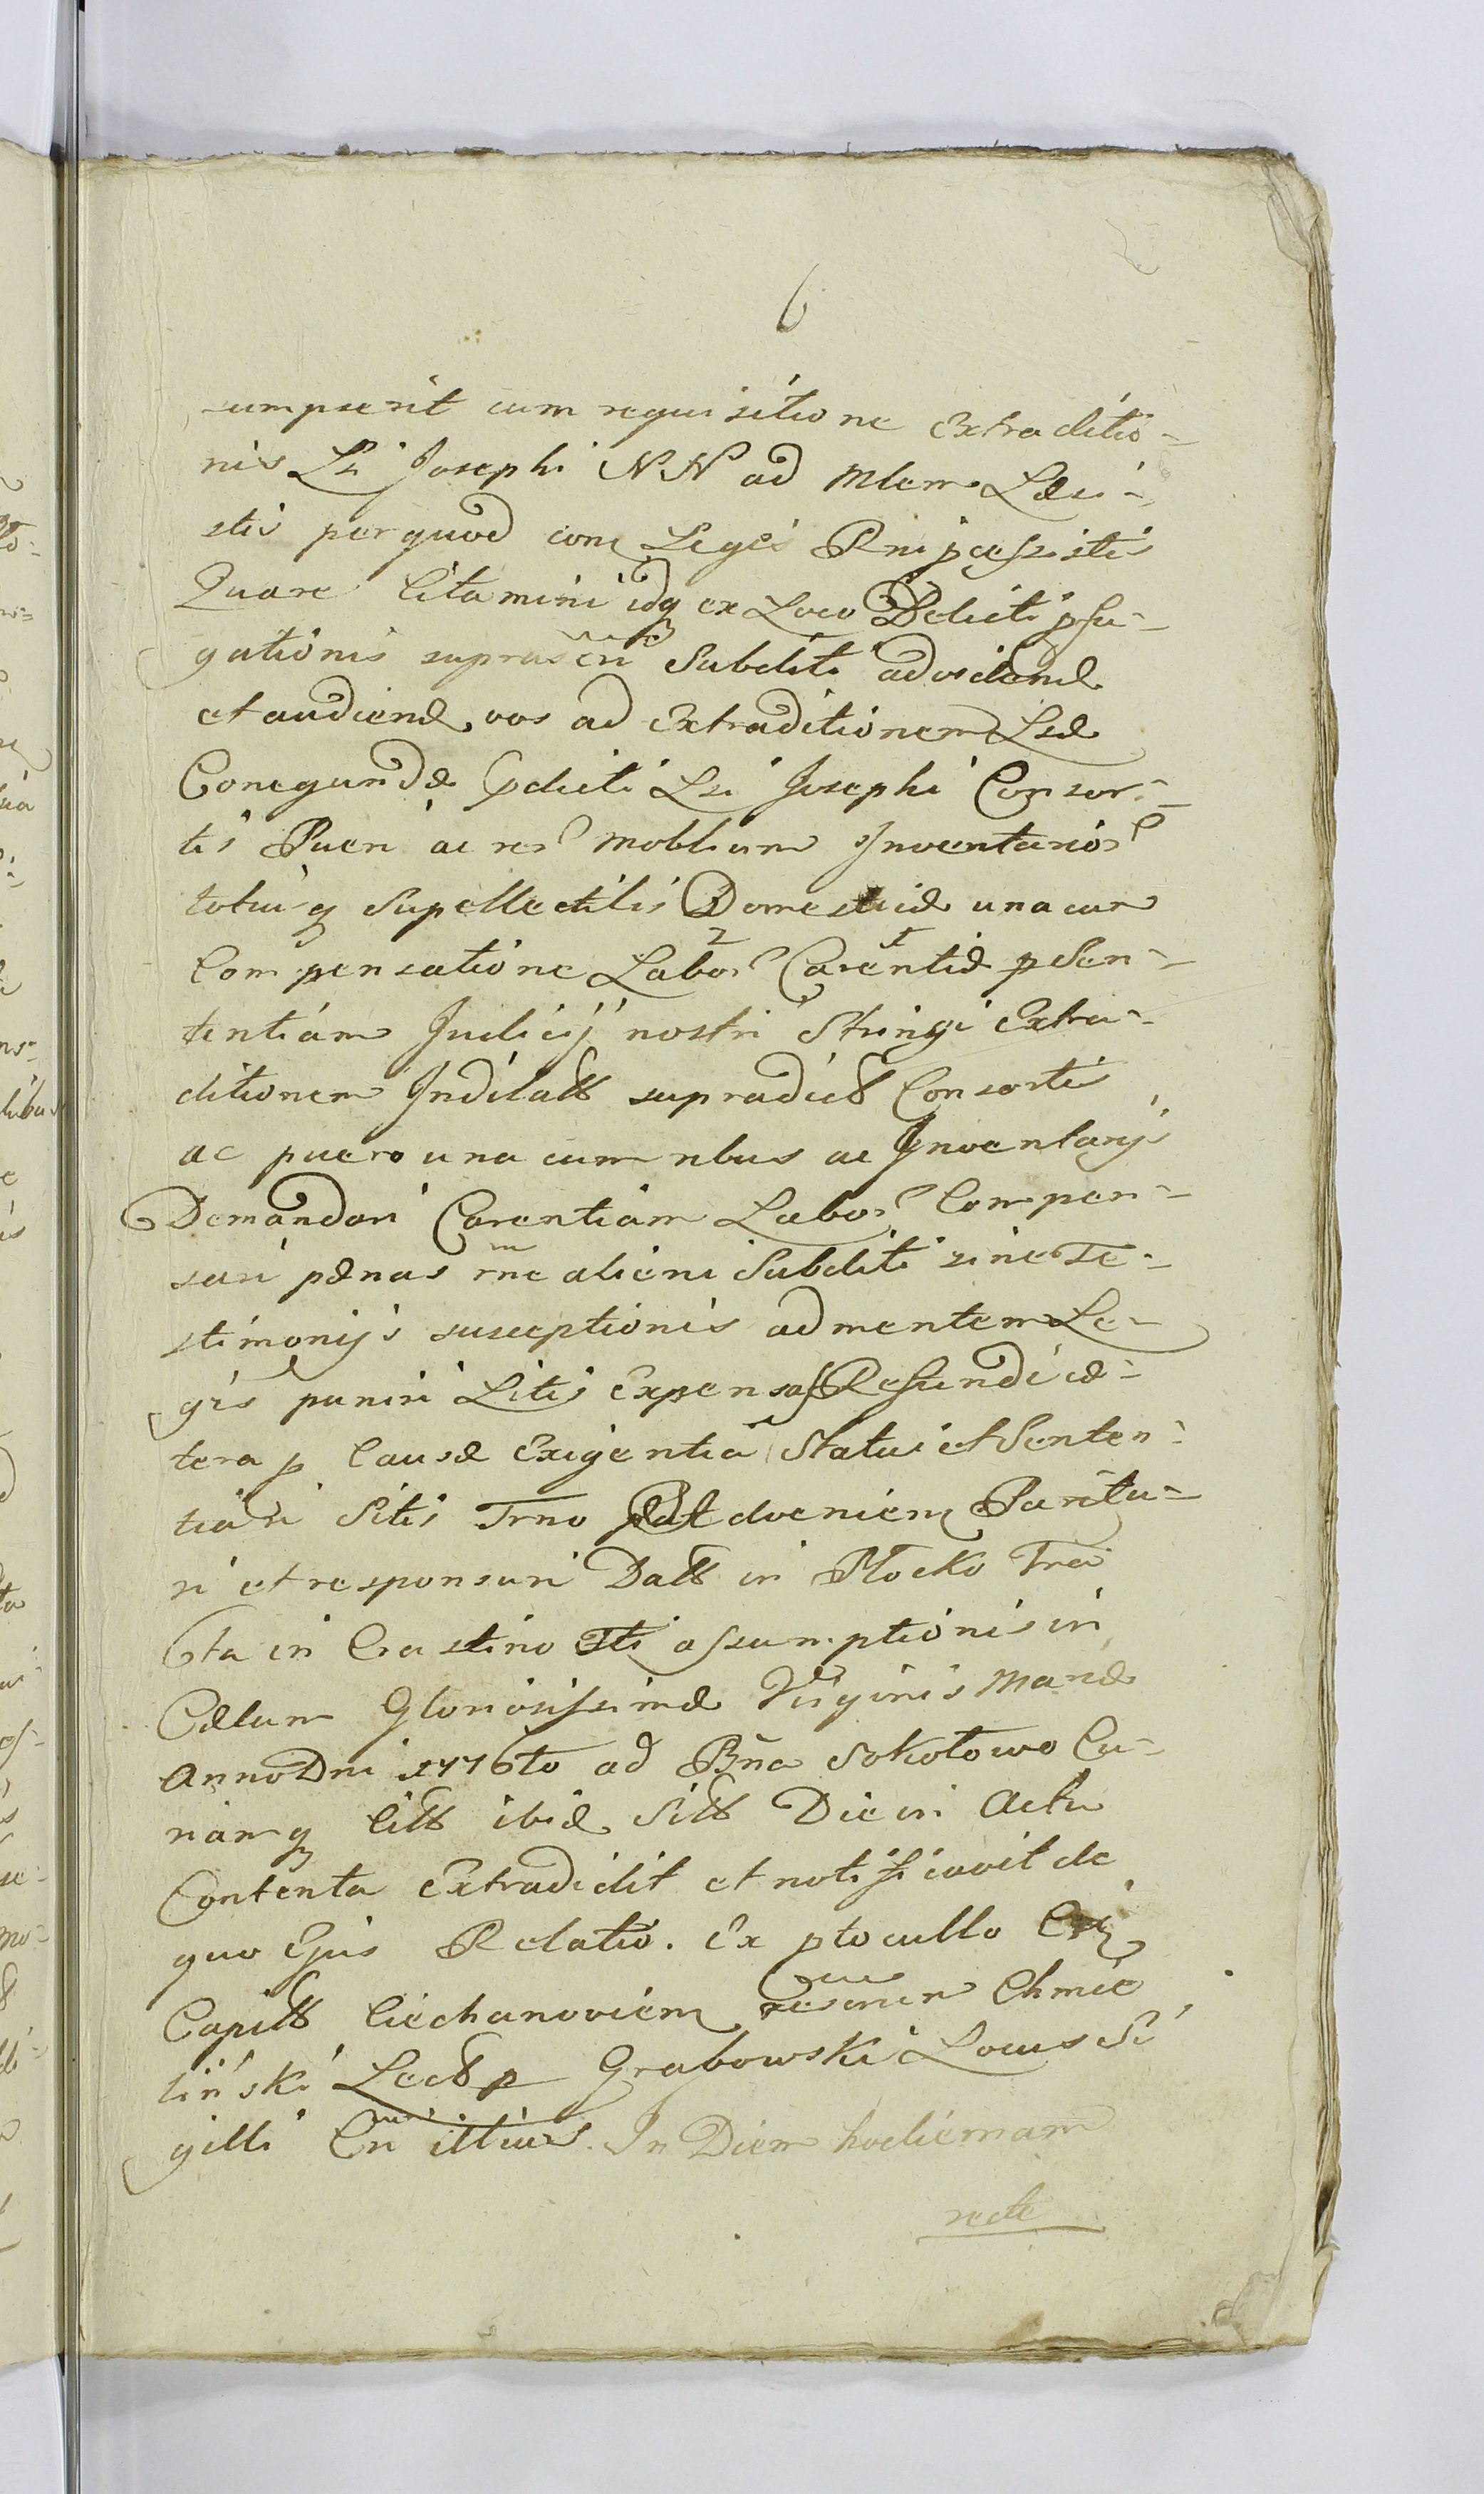 6
sumpserit cum requisitione Extraditio-
nis Lsi Josephi NN ad Mlem Læsi-
stis per quod cone Legis Rni pcessistis
Quare Citamini idq ex Loco Delicti pfu-
gationis suprascri Subditi ad vidend
et audiend vos ad Extraditionem Lsæ
Conegundæ pdicti Lsi Josephi Consor-
tis Pueri ac rer Moblium Inventarior
totiusq Supellectilis Domesticæ una cum
Compensatione Labor Carentiæ p Sen-
tentiam Judicij nostri Stringi Extra-
ditionem Indilatt supradict Consortis
ac puero una cum rbus ac Inventarijs
Demandari Carentiam Labor Compen-
sari pænas rne alieni Subditi sine Te-
stimonijs susceptionis ad mentem Le-
gis puniri Litis Expensas Refundi cæ-
tera p Causæ Exigentia Statui et Senten-
tiari Sitis Trno paritu-
ri et responsuri Datt in Płocko Fria
6ta in Crastino Fti assumptionis in
Cælum Gloriosissimæ Virginis Mariæ
Anno Dni 1776to ad Bna Sokołowo Cu-
riamq Citt ibid Sitt Die in Actu
Contenta Extradidit et notificavit de
quo Ejus Relatio. Ex ptocullo
Capitt Ciechanovien Chmie
liński Lect p Grabowski Locus Si
gilli Cri illius. In Diem hodiernam
recte